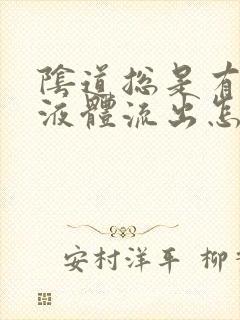 陰道總是有
液體流出怎
安村洋平 柳